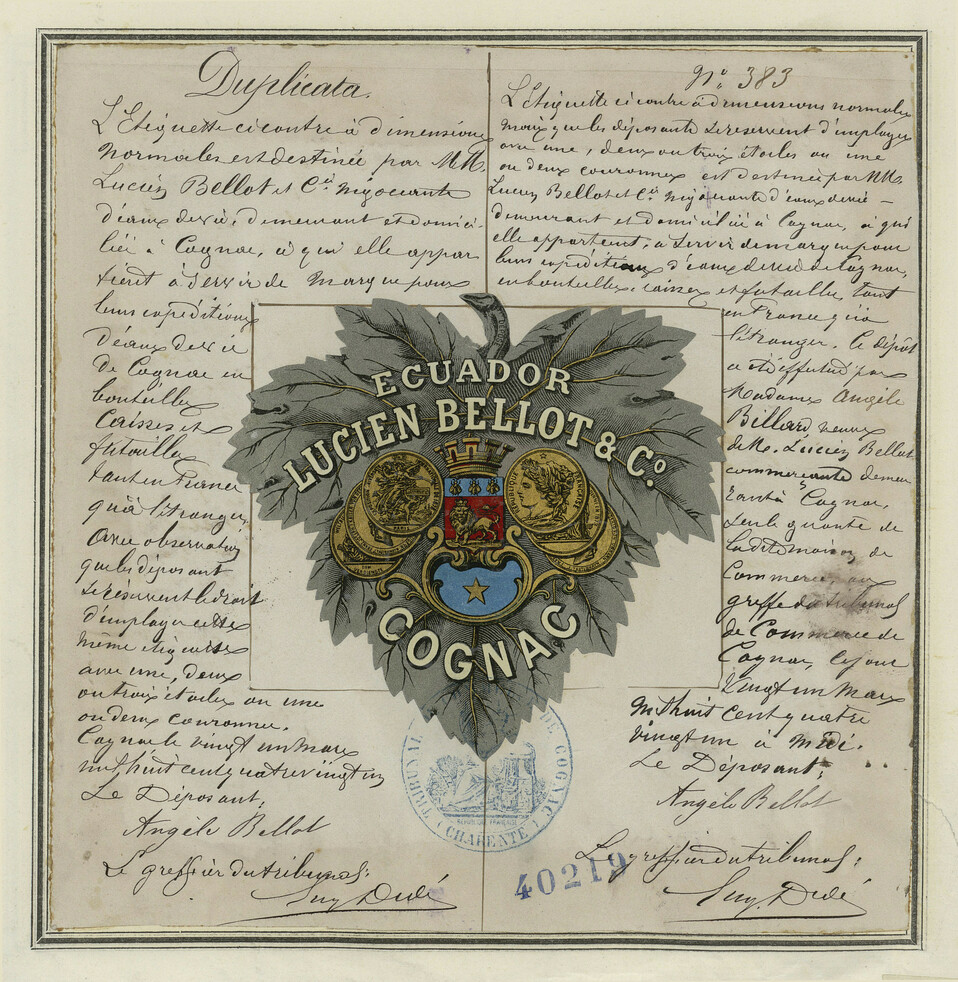 Duplicata.
L'Etiquette ci contre à dimensions
normales est destinée par MM.
Lucien Bellot et Cie négociants
d'eaux de vie, demeurant et domici-
liés à Cognac, à qui elle appar
tient à servir de marque pour
leurs expéditions
d'eaux de vie
de Cognac en
bouteilles
Caisses et
futailles
tant en France
qu'à l'étranger
Avec observation
que les déposants
se réservent le droit
d'employer cette
même étiquette
avec une, deux
ou trois étoiles ou une
ou deux couronnes.
Cognac le vingt un Mars
mil huit cent quatre vingt un
Le Déposant,
Angèle Bellot
Le greffier du tribunal:
No 383
L'Etiquette ci contre à dimensions normales
mais que les déposants se réservent d'employer
avec une, deux ou trois étoiles ou une
ou deux couronnes est destinée par MM.
Lucien Bellot et Cie négociants d'eaux de vie –
demeurant et domiciliés à Cognac, à qui
elle appartient, à servir de marque pour
leurs expéditions d'eaux de vie de Cognac,
en bouteilles, caisses et futailles, tant
en France qu'à
l'étranger. Ce dépôt
a été effectué par
Madame Angèle
Billard veuve
de M. Lucien Bellot
commerçante demeu
rant à Cognac,
seule gérante de
la dite maison de
Commerce, au
greffe du tribunal
de Commerce de
Cognac, le jour
vingt un Mars
mil huit cent quatre
vingt un à Midi.
Le Déposant:
Angèle Bellot
Le greffier du tribunal:
ECUADOR
LUCIEN BELLOT & Co.
COGNAC
TRIBUNAL DE COGNAC
(CHARENTE)
40219